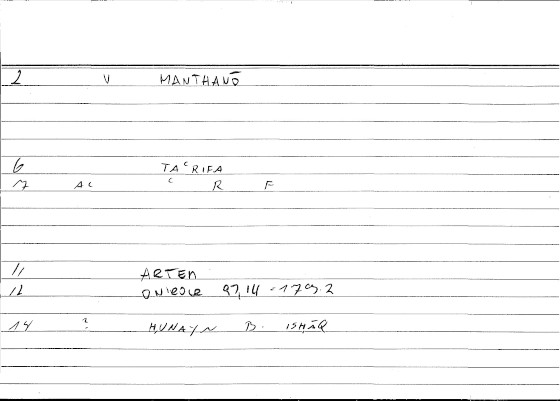 2 V MANTHANŌ
6 TAʿRIFA
17 AC ʿ R F
11 ARTEM
12 ONIROCR 97,14 = 179.2
14 ? ḤUNAYN B. ISḤĀQ